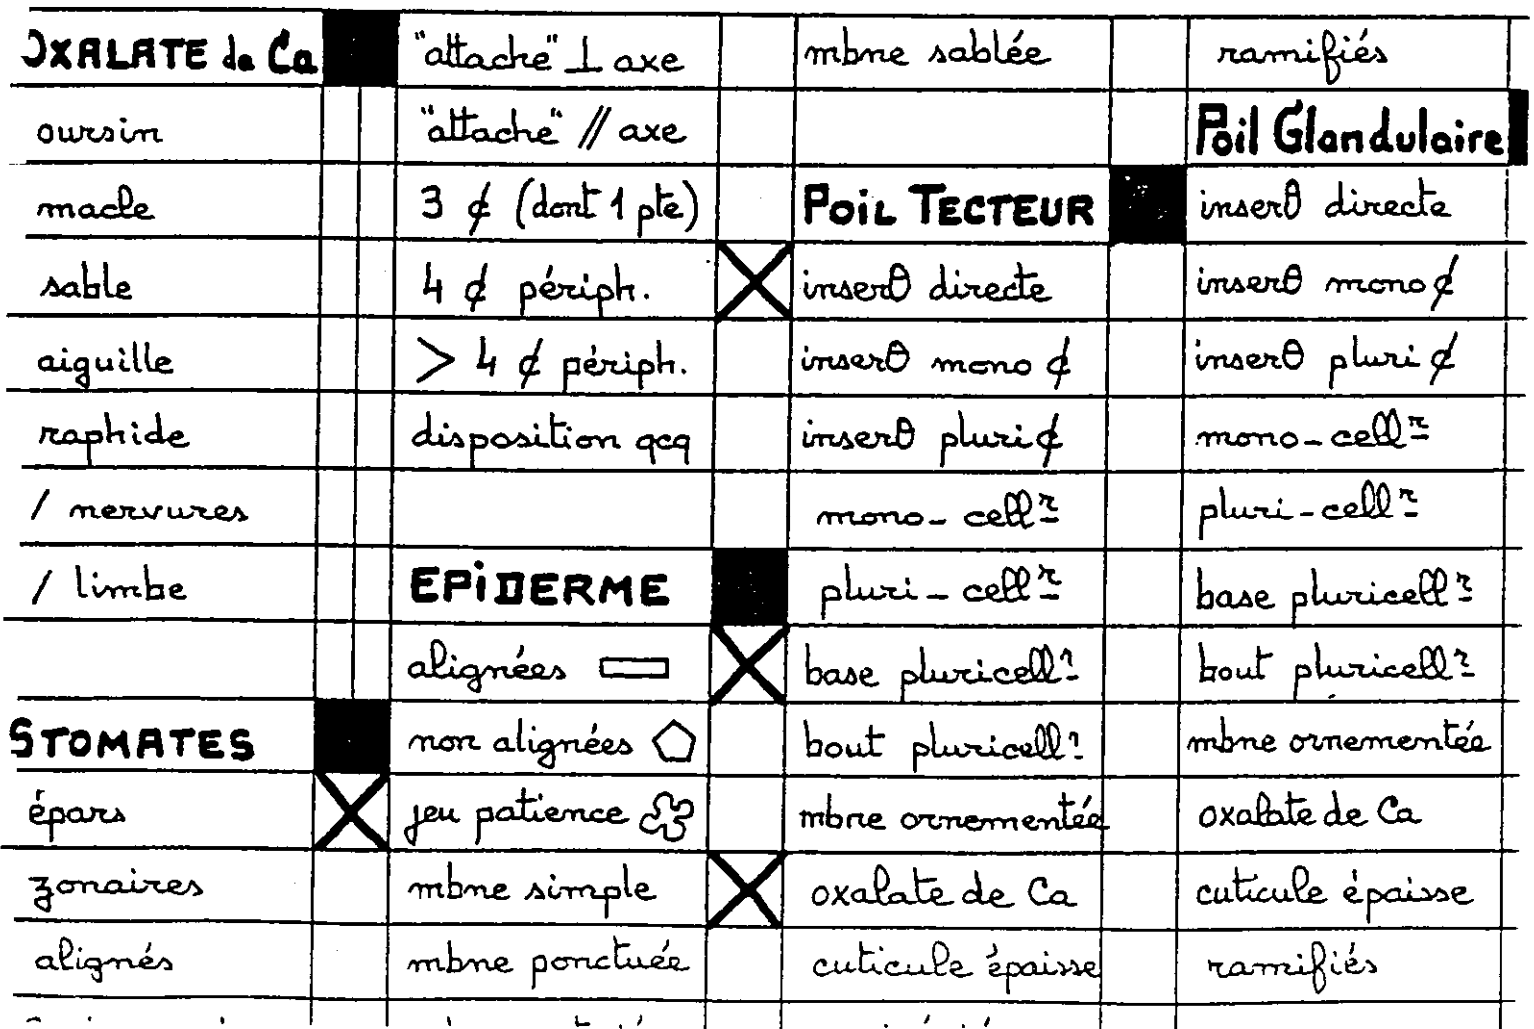 OXALATE de Ca
oursin
macle
sable
aiguille
raphide
/ nervures
/ limbe
STOMATES
épars
zonaires
alignés
"attache" ⊥ axe
"attache" // axe
3 ¢ (dont 1 pte)
4 ¢ périph.
> 4 ¢ périph.
disposition qcq
EPIDERME
alignées
non alignées
jeu patience
mbne simple
mbne ponctuée
mbne sablée
POIL TECTEUR
inserθ directe
inserθ mono ¢
inserθ pluri ¢
mono-cellʳᵉ
pluri-cellʳᵉ
base pluricellʳᵉ
bout pluricellʳᵉ
mbne ornementée
oxalate de Ca
cuticule épaisse
ramifiés
Poil Glandulaire
inserθ directe
inserθ mono ¢
inserθ pluri ¢
mono-cellʳᵉ
pluri-cellʳᵉ
base pluricellʳᵉ
bout pluricellʳᵉ
mbne ornementée
oxalate de Ca
cuticule épaisse
ramifiés